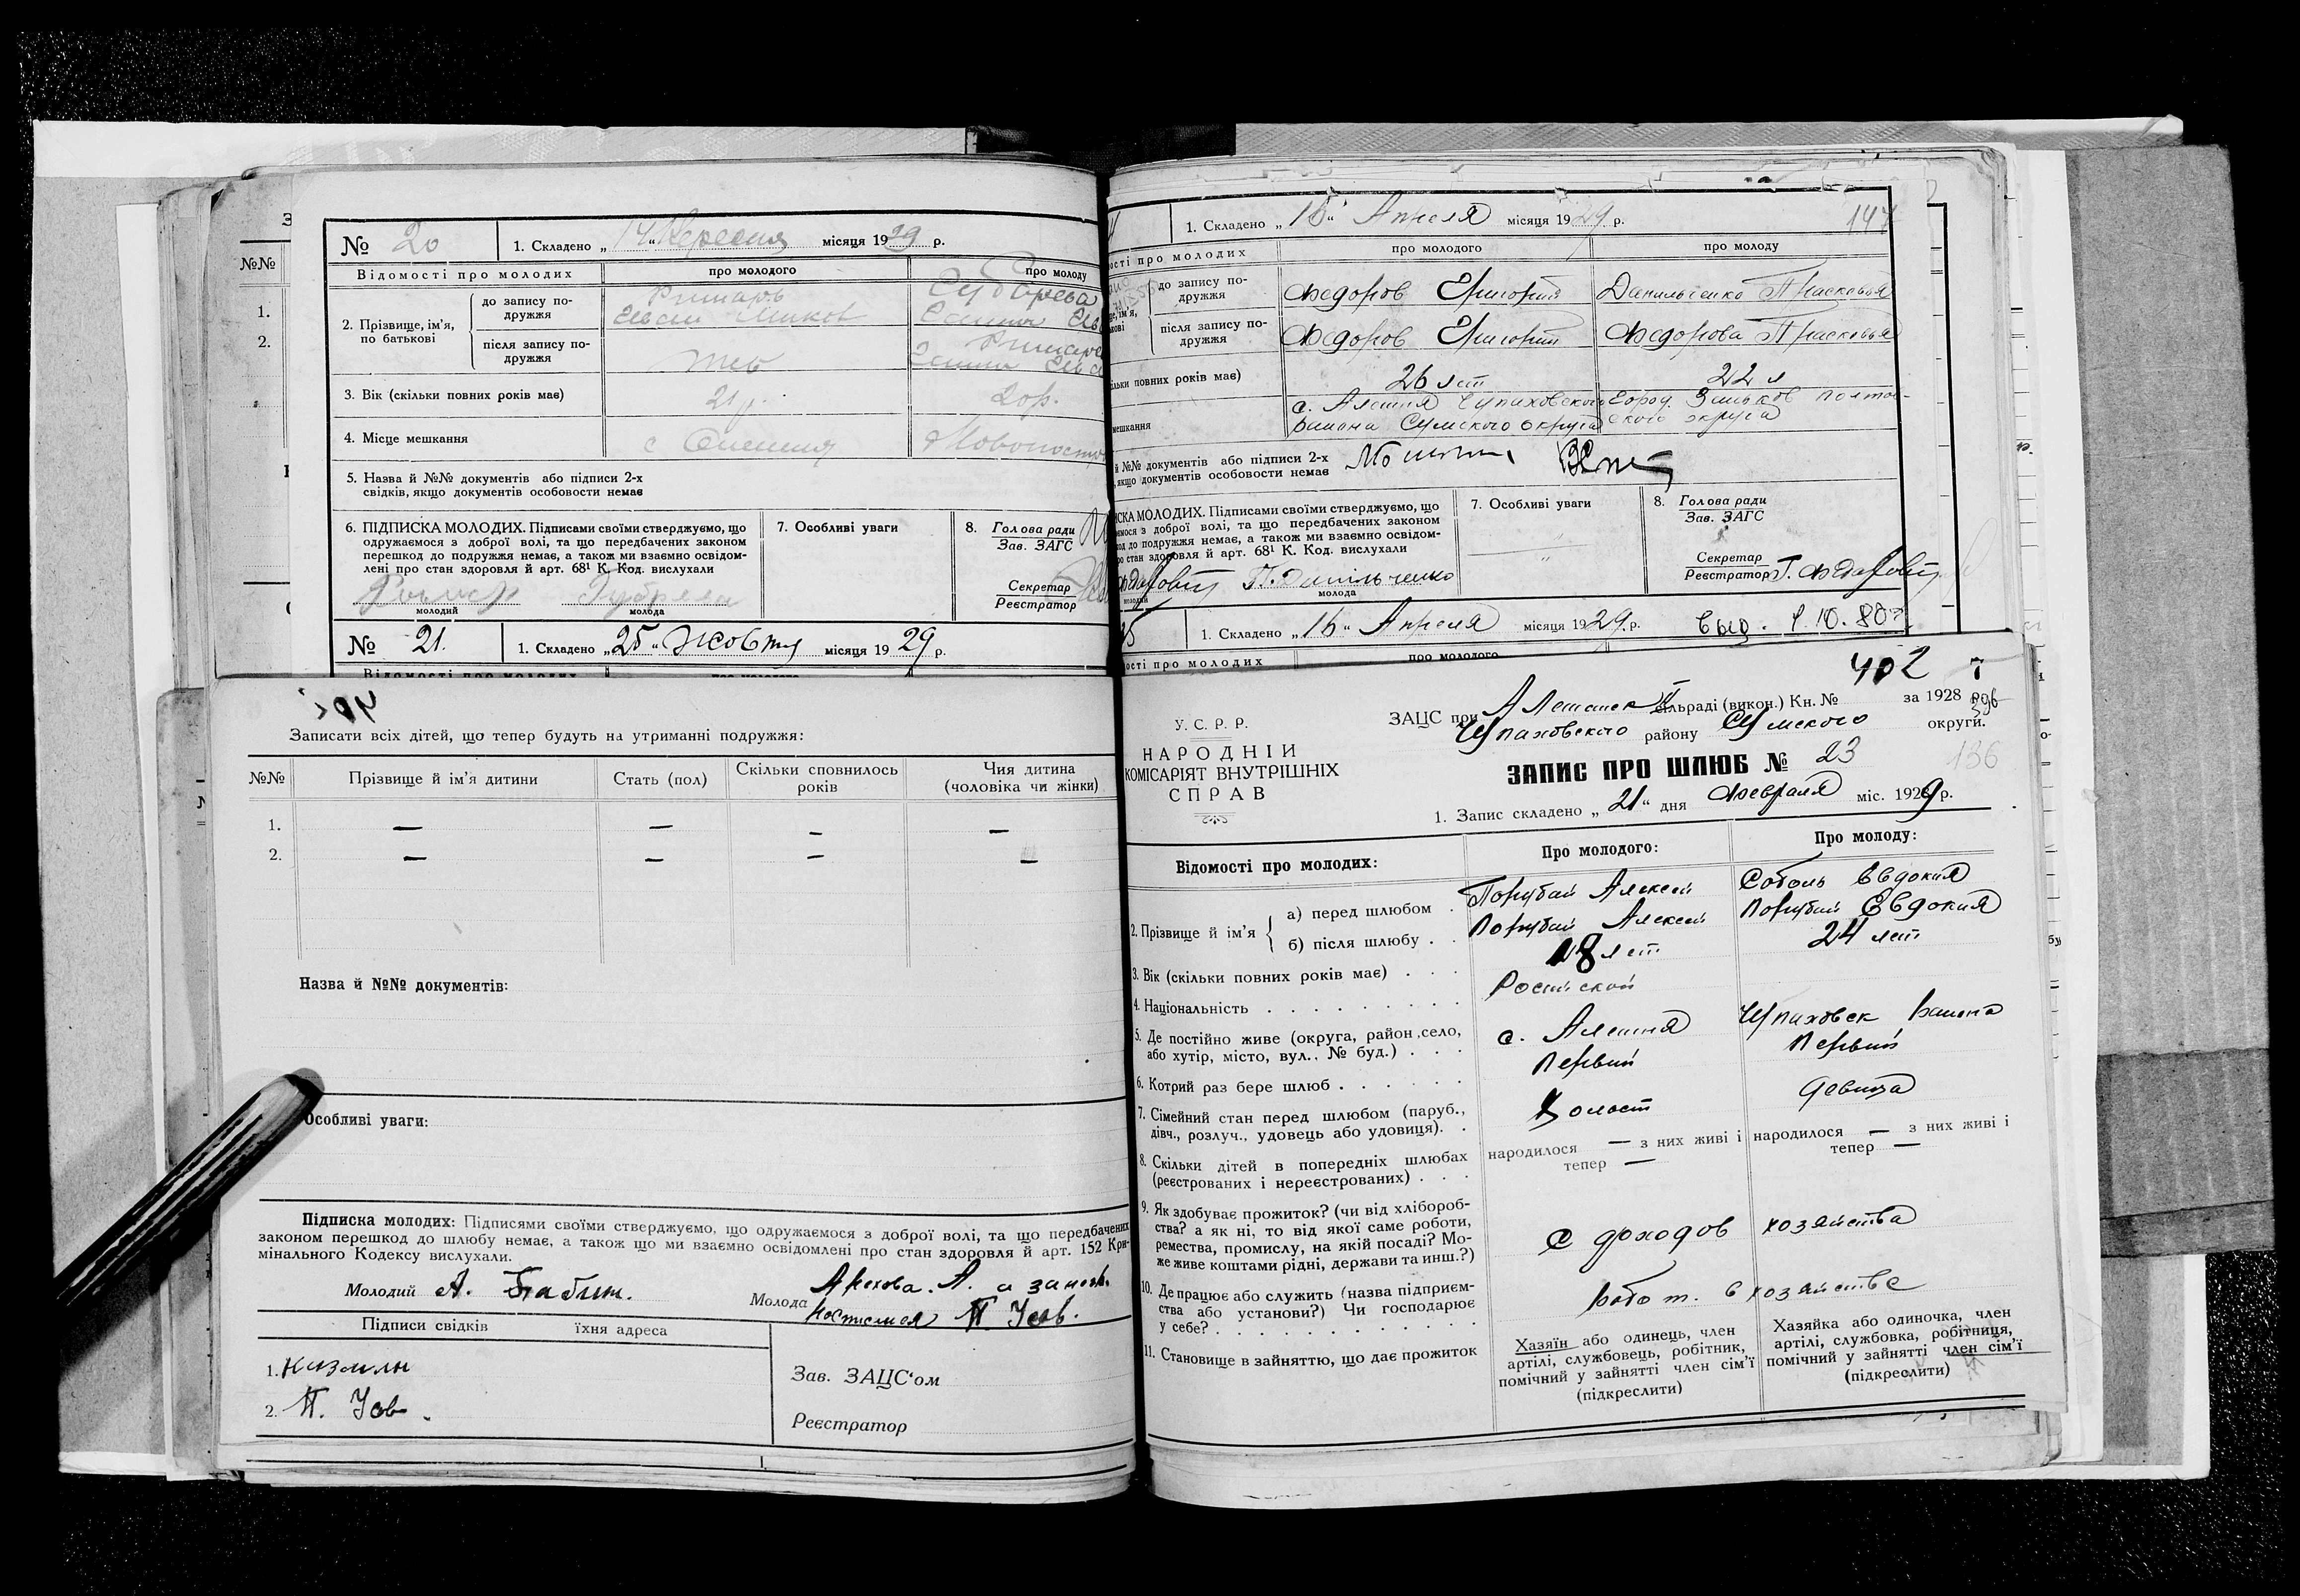 № 20 1. Складено „14“ Вересня місяця 1929 р.
Відомості про молодих про молодого про молоду
2. Прізвище, ім'я, по батькові
до запису по-
дружжя
після запису по-
дружжя
3. Вік (скільки повних років має) 21 р. 20 р.
4. Місце мешкання
5. Назва й №№ документів або підписи 2-х
свідків, якщо документів особовости немає
6. ПІДПИСКА МОЛОДИХ. Підписами своїми стверджуємо, що
одружаємося з доброї волі, та що передбачених законом
перешкод до подружжя немає, а також ми взаємно освідом-
лені про стан здоровля й арт. 68¹ К. Код. вислухали
молодий молода
7. Особливі уваги
8. Голова ради
Зав. ЗАГС
Секретар
Реєстратор
№ 21. 1. Складено „25“ Жовтня місяця 1929 р.
1. Складено „16“ Апреля місяця 1929 р. 147
ості про молодих про молодого про молоду
до запису по-
дружжя
Федоров Григорий Данильченко Прасковья
після запису по-
дружжя
Федоров Григорий Федорова Прасковья
ільки повних років має) 26 лет 22 л
мешкання
с. Алешня Чупаховского Город. Зиньков Полтав-
района Сумского округа ского округа
й №№ документів або підписи 2-х
, якщо документів особовости немає
ИСКА МОЛОДИХ. Підписами своїми стверджуємо, що
ємося з доброї волі, та що передбачених законом
код до подружжя немає, а також ми взаємно освідом-
про стан здоровля й арт. 68¹ К. Код. вислухали
П. Данільченко
молодий молода
7. Особливі уваги
8. Голова ради
Зав. ЗАГС
Секретар
Реєстратор
25 1. Складено „16“ Апреля місяця 1929 р. выд. 9.10.80г
ості про молодих про молодого
Записати всіх дітей, що тепер будуть на утриманні подружжя:
№№ Прізвище й ім'я дитини Стать (пол) Скільки сповнилось років Чия дитина (чоловіка чи жінки)
1. — — — —
2. — — — —
Назва й №№ документів:
Особливі уваги:
Підписка молодих: Підписями своїми стверджуємо, що одружаємося з доброї волі, та що передбачених
законом перешкод до шлюбу немає, а також що ми взаємно освідомлені про стан здоровля й арт. 152 Кри-
мінального Кодексу вислухали.
Молодий А. Бабич. Молода
Підписи свідків їхня адреса
1.
2. П. Усов.
Зав. ЗАЦС'ом
Реєстратор
402
У. С. Р. Р.
НАРОДНІЙ
КОМІСАРІЯТ ВНУТРІШНІХ
СПРАВ
ЗАЦС при Алешанск сільраді (викон.) Кн. № за 1928 р.
Чупаховского району Сумского округи.
136
ЗАПИС ПРО ШЛЮБ № 23
1. Запис складено „21“ дня Февраля міс. 1929 р.
Відомості про молодих: Про молодого: Про молоду:
2. Прізвище й ім'я
а) перед шлюбом . Порубай Алексей Соболь Евдокия
б) після шлюбу . . Порубай Алексей Порубай Евдокия
3. Вік (скільки повних років має) . . . 18 лет 24 лет
4. Національність . . . . . . . . .
5. Де постійно живе (округа, район, село,
або хутір, місто, вул., № буд.) . . .
с. Алешня Чупаховск района
6. Котрий раз бере шлюб . . . . . . Первый Первый
7. Сімейний стан перед шлюбом (паруб.,
дівч., розлуч., удовець або удовиця). .
Холост девица
8. Скільки дітей в попередніх шлюбах
(реєстрованих і нереєстрованих) . . .
народилося — з них живі і
тепер —
народилося — з них живі і
тепер —
9. Як здобуває прожиток? (чи від хлібороб-
ства? а як ні, то від якої саме роботи,
ремества, промислу, на якій посаді? Мо-
же живе коштами рідні, держави та инш.?)
с доходов хозяйства
10. Де працює або служить (назва підприєм-
ства або установи?) Чи господарює
у себе? . . . . . . . . . . . .
работ. в хозяйстве
11. Становище в зайняттю, що дає прожиток
Хазяїн або одинець, член
артілі, службовець, робітник,
помічний у зайнятті член сім'ї
(підкреслити)
Хазяйка або одиночка, член
артілі, службовка, робітниця,
помічний у зайнятті член сім'ї
(підкреслити)